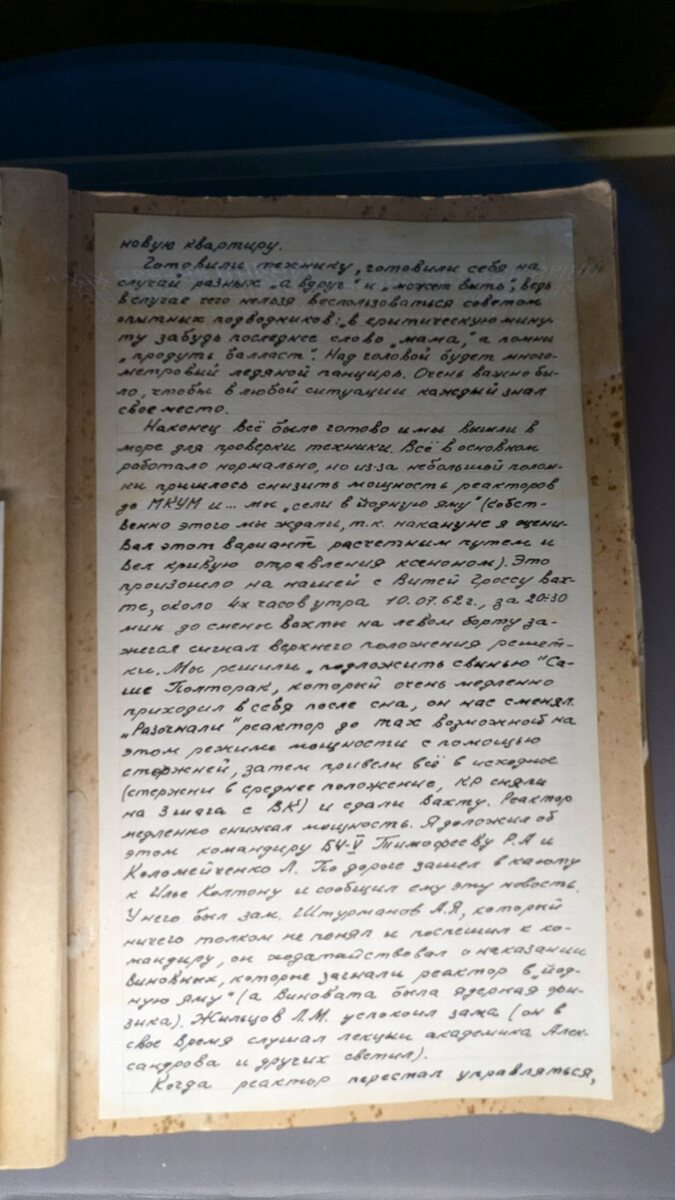 новую квартиру.
Готовили технику, готовили себя на
случай разных „а вдруг" и „может быть", ведь
в случае чего нельзя воспользоваться советом
опытных подводников: „в критическую мину-
ту забудь последнее слово „мама", а помни
„продуть балласт". Над головой будет много-
метровый ледяной панцирь. Очень важно бы-
ло, чтобы в любой ситуации каждый знал
свое место.
Наконец всё было готово и мы вышли в
море для проверки техники. Всё в основном
работало нормально, но из-за небольшой полом-
ки пришлось снизить мощность реакторов
до МКУМ и... мы „сели в йодную яму" (собст-
венно этого мы ждали, т.к. накануне я оцени-
вал этот вариант расчетным путем и
вел кривую отравления ксеноном). Это
произошло на нашей с Витей Гроссу вах-
те, около 4х часов утра 10.07.62г., за 20-30
мин до смены вахты на левом борту за-
жегся сигнал верхнего положения решет-
ки. Мы решили „подложить свинью" Са-
ше Полторак, который очень медленно
приходил в себя после сна, он нас сменял.
„Разогнали" реактор до max возможной на
этом режиме мощности с помощью
стержней, затем привели всё в исходное
(стержни в среднее положение, КР сняли
на 3 шага с ВК) и сдали вахту. Реактор
медленно снижал мощность. Я доложил об
этом командиру БЧ-V Тимофееву Р.А и
Коломейченко Л. По дороге зашел в каюту
к Илье Колтону и сообщил ему эту новость.
У него был зам. Штурманов А.Я, который
ничего толком не понял и поспешил к ко-
мандиру, он ходатайствовал о наказании
виновных, которые загнали реактор в „йод-
ную яму" (а виновата была ядерная фи-
зика). Жильцов Л.М. успокоил зама (он в
свое время слушал лекции академика Алек-
сандрова и других светил).
Когда реактор перестал управляться,